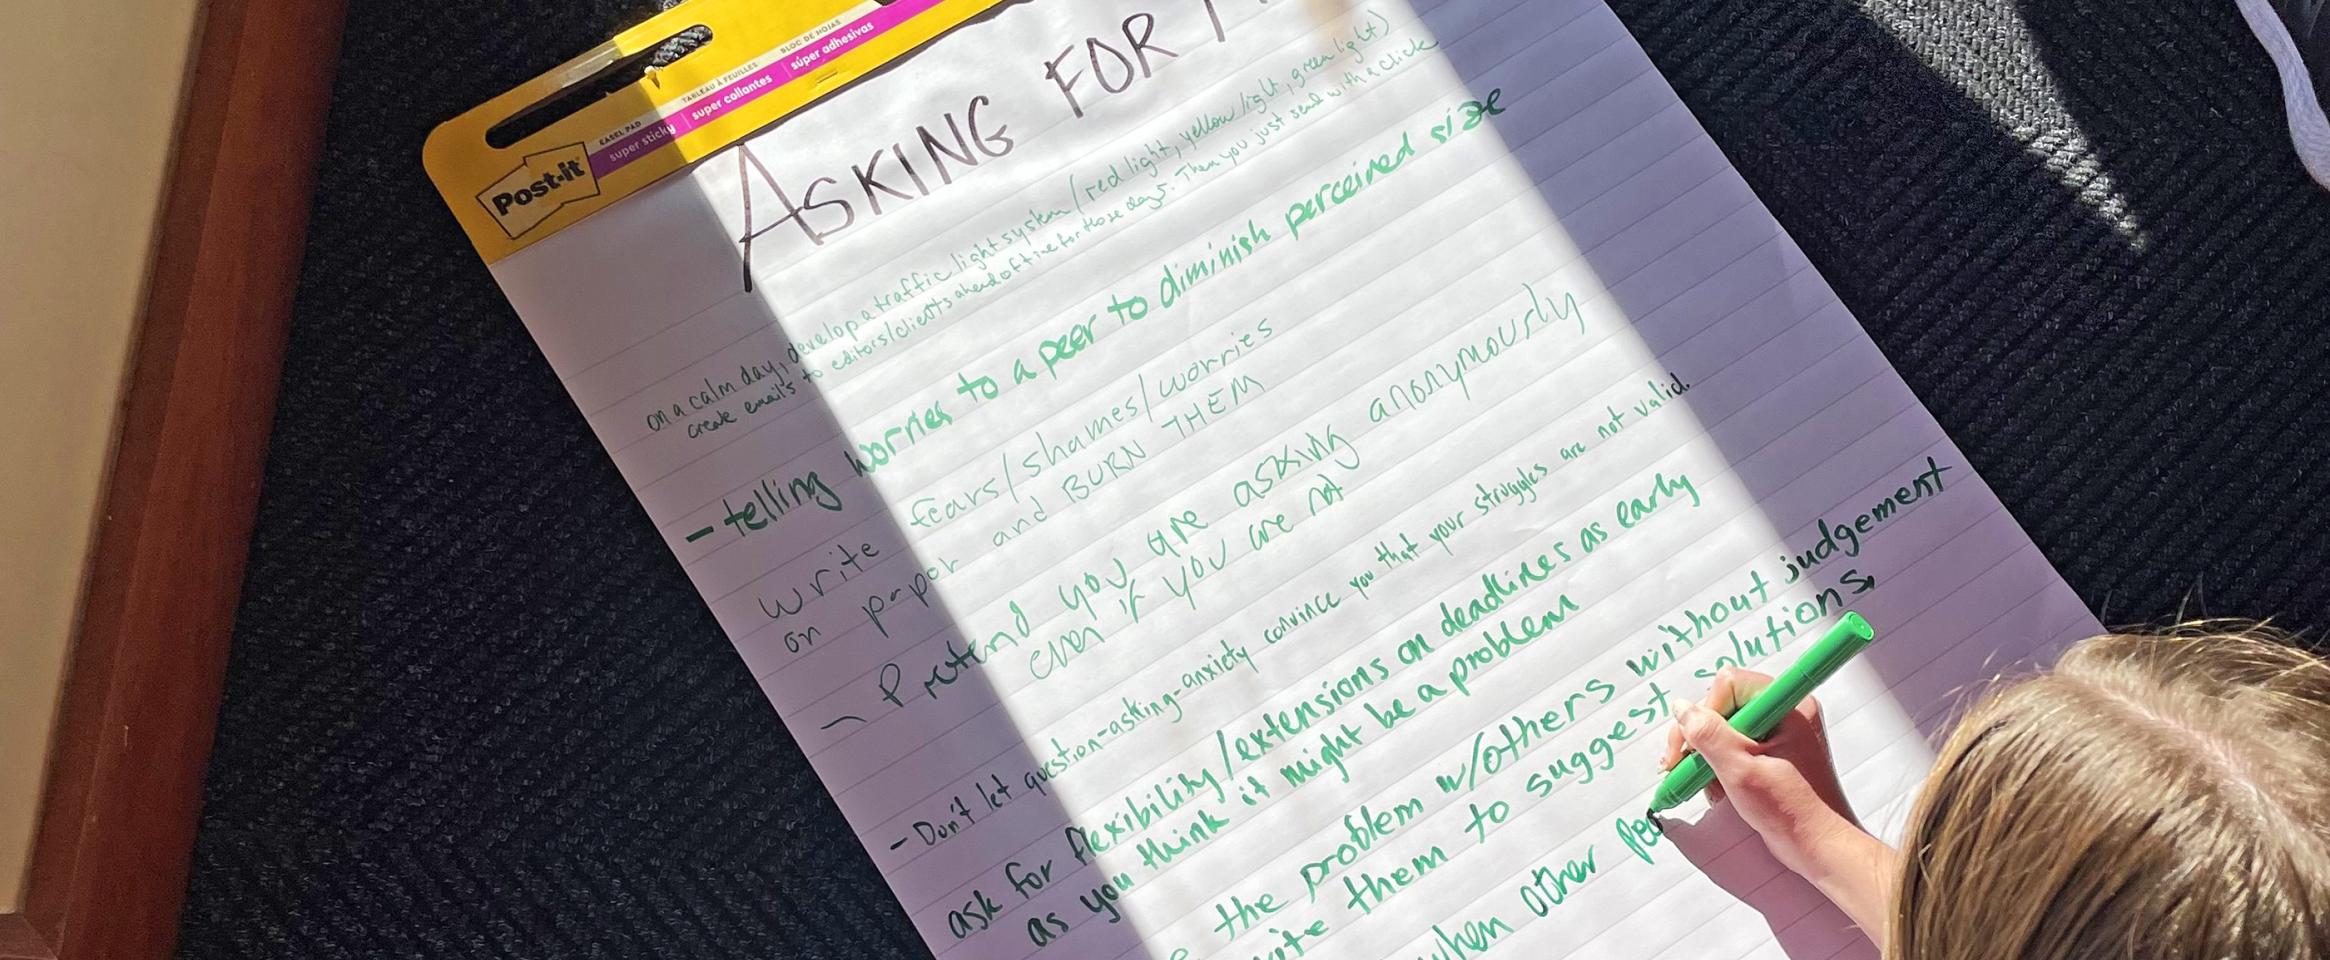 EASEL PAD
TABLEAU À FEUILLES
BLOC DE HOJAS
super sticky | super collantes | súper adhesivas
Post-it
ASKING FOR
on a calm day, develop a traffic light system (red light, yellow light, green light)
create email's to editors/clients ahead of time for those days. Then you just send with a click
- telling worries to a peer to diminish perceived size
write fears/shames/worries
on paper and BURN THEM
- Pretend you are asking anonymously
even if you are not
- Don't let question-asking-anxiety convince you that your struggles are not valid.
ask for flexibility/extensions on deadlines as early
as you think it might be a problem
the problem w/others without judgement
them to suggest solutions
when other